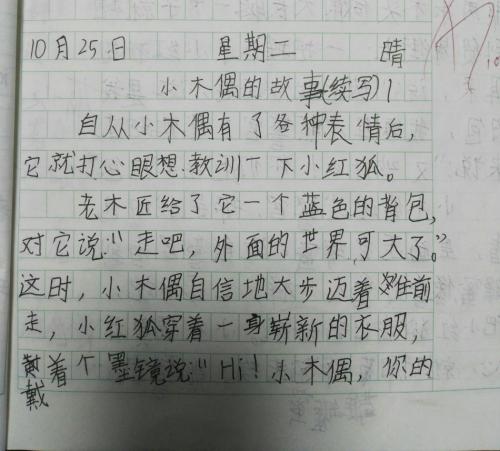 10月25日 星期二 晴
小木偶的故事(续写)1
自从小木偶有了各种表情后,
它就打心眼想教训一下小红狐。
老木匠给了它一个蓝色的背包,
对它说:"走吧,外面的世界可大了。"
这时,小木偶自信地大步迈着往前
走,小红狐穿着一身崭新的衣服,
着个墨镜说:"Hi!小木偶,你的
戴
10